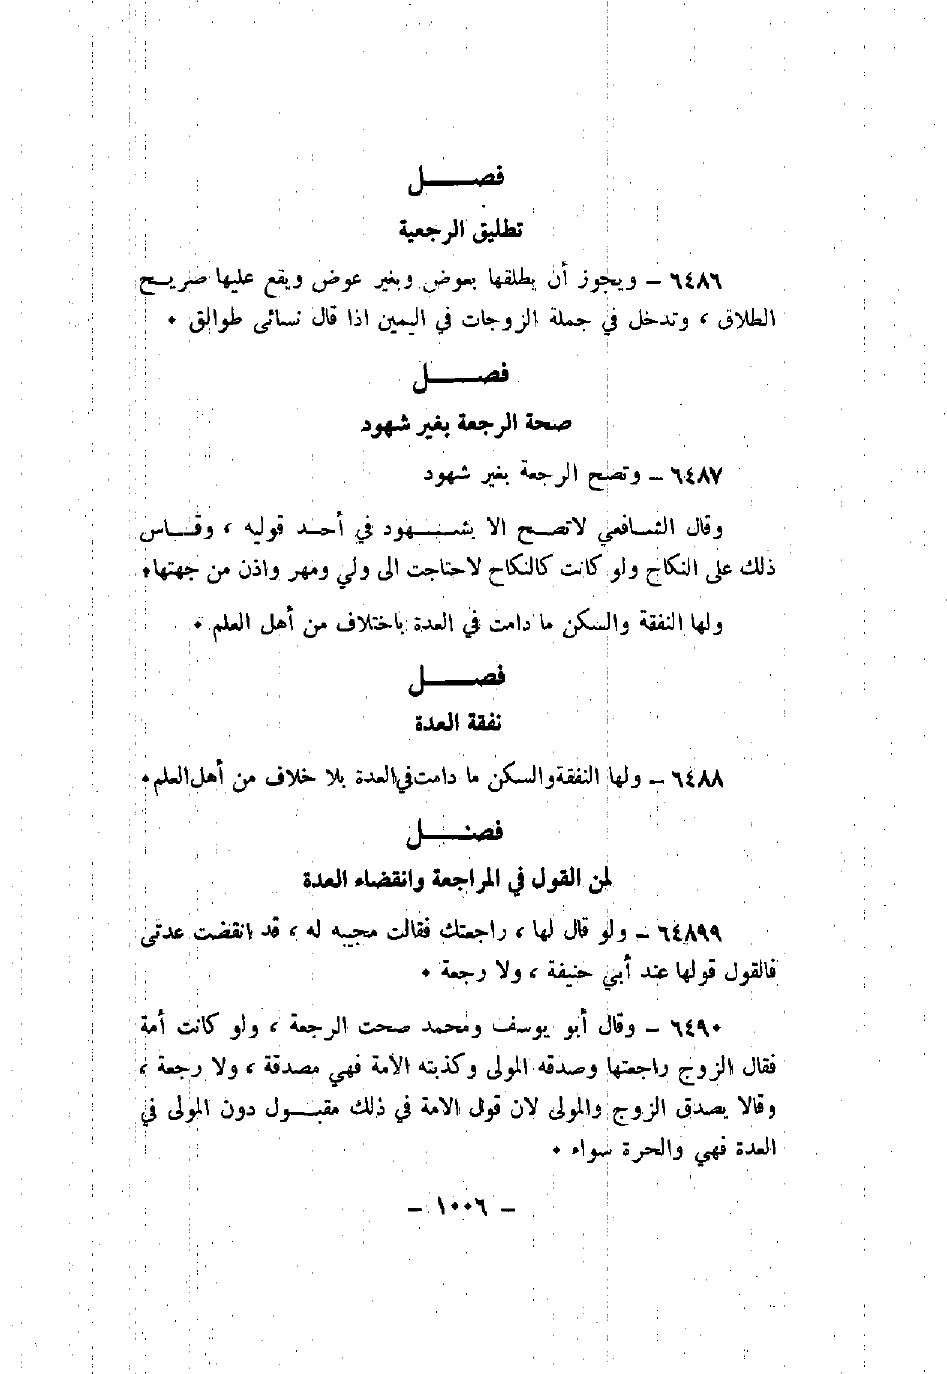 فصـــــل
تطليق الرجعية
٦٤٨٦ – ويجوز أن يطلقها بعوض وبغير عوض ويقع عليها صريـــح
الطلاق ، وتدخل في جملة الزوجات في اليمين اذا قال نسائى طوالق •
فصـــــل
صحة الرجعة بغير شهود
٦٤٨٧ – وتصح الرجعة بغير شهود
وقال الشـافعي لاتصــح الا بشـــهود في أحــد قوليه ، وقــاس
ذلك على النكاح ولو كانت كالنكاح لاحتاجت الى ولي ومهر واذن من جهتها•
ولها النفقة والسكن ما دامت في العدة باختلاف من أهل العلم •
فصـــــل
نفقة العدة
٦٤٨٨ – ولها النفقة والسكن ما دامت في العدة بلا خلاف من أهل العلم•
فصـــــل
لمن القول في المراجعة وانقضاء العدة
٦٤٨٩٩ – ولو قال لها ، راجعتك فقالت مجيبه له ، قد انقضت عدتي
فالقول قولها عند أبي حنيفة ، ولا رجعة •
٦٤٩٠ – وقال أبو يوسف ومحمد صحت الرجعة ، ولو كانت أمة
فقال الزوج راجعتها وصدقه المولى وكذبته الامة فهي مصدقة ، ولا رجعة ،
وقالا يصدق الزوج والمولى لان قول الامة في ذلك مقبـــول دون المولى في
العدة فهي والحرة سواء •
– ١٠٠٦ –